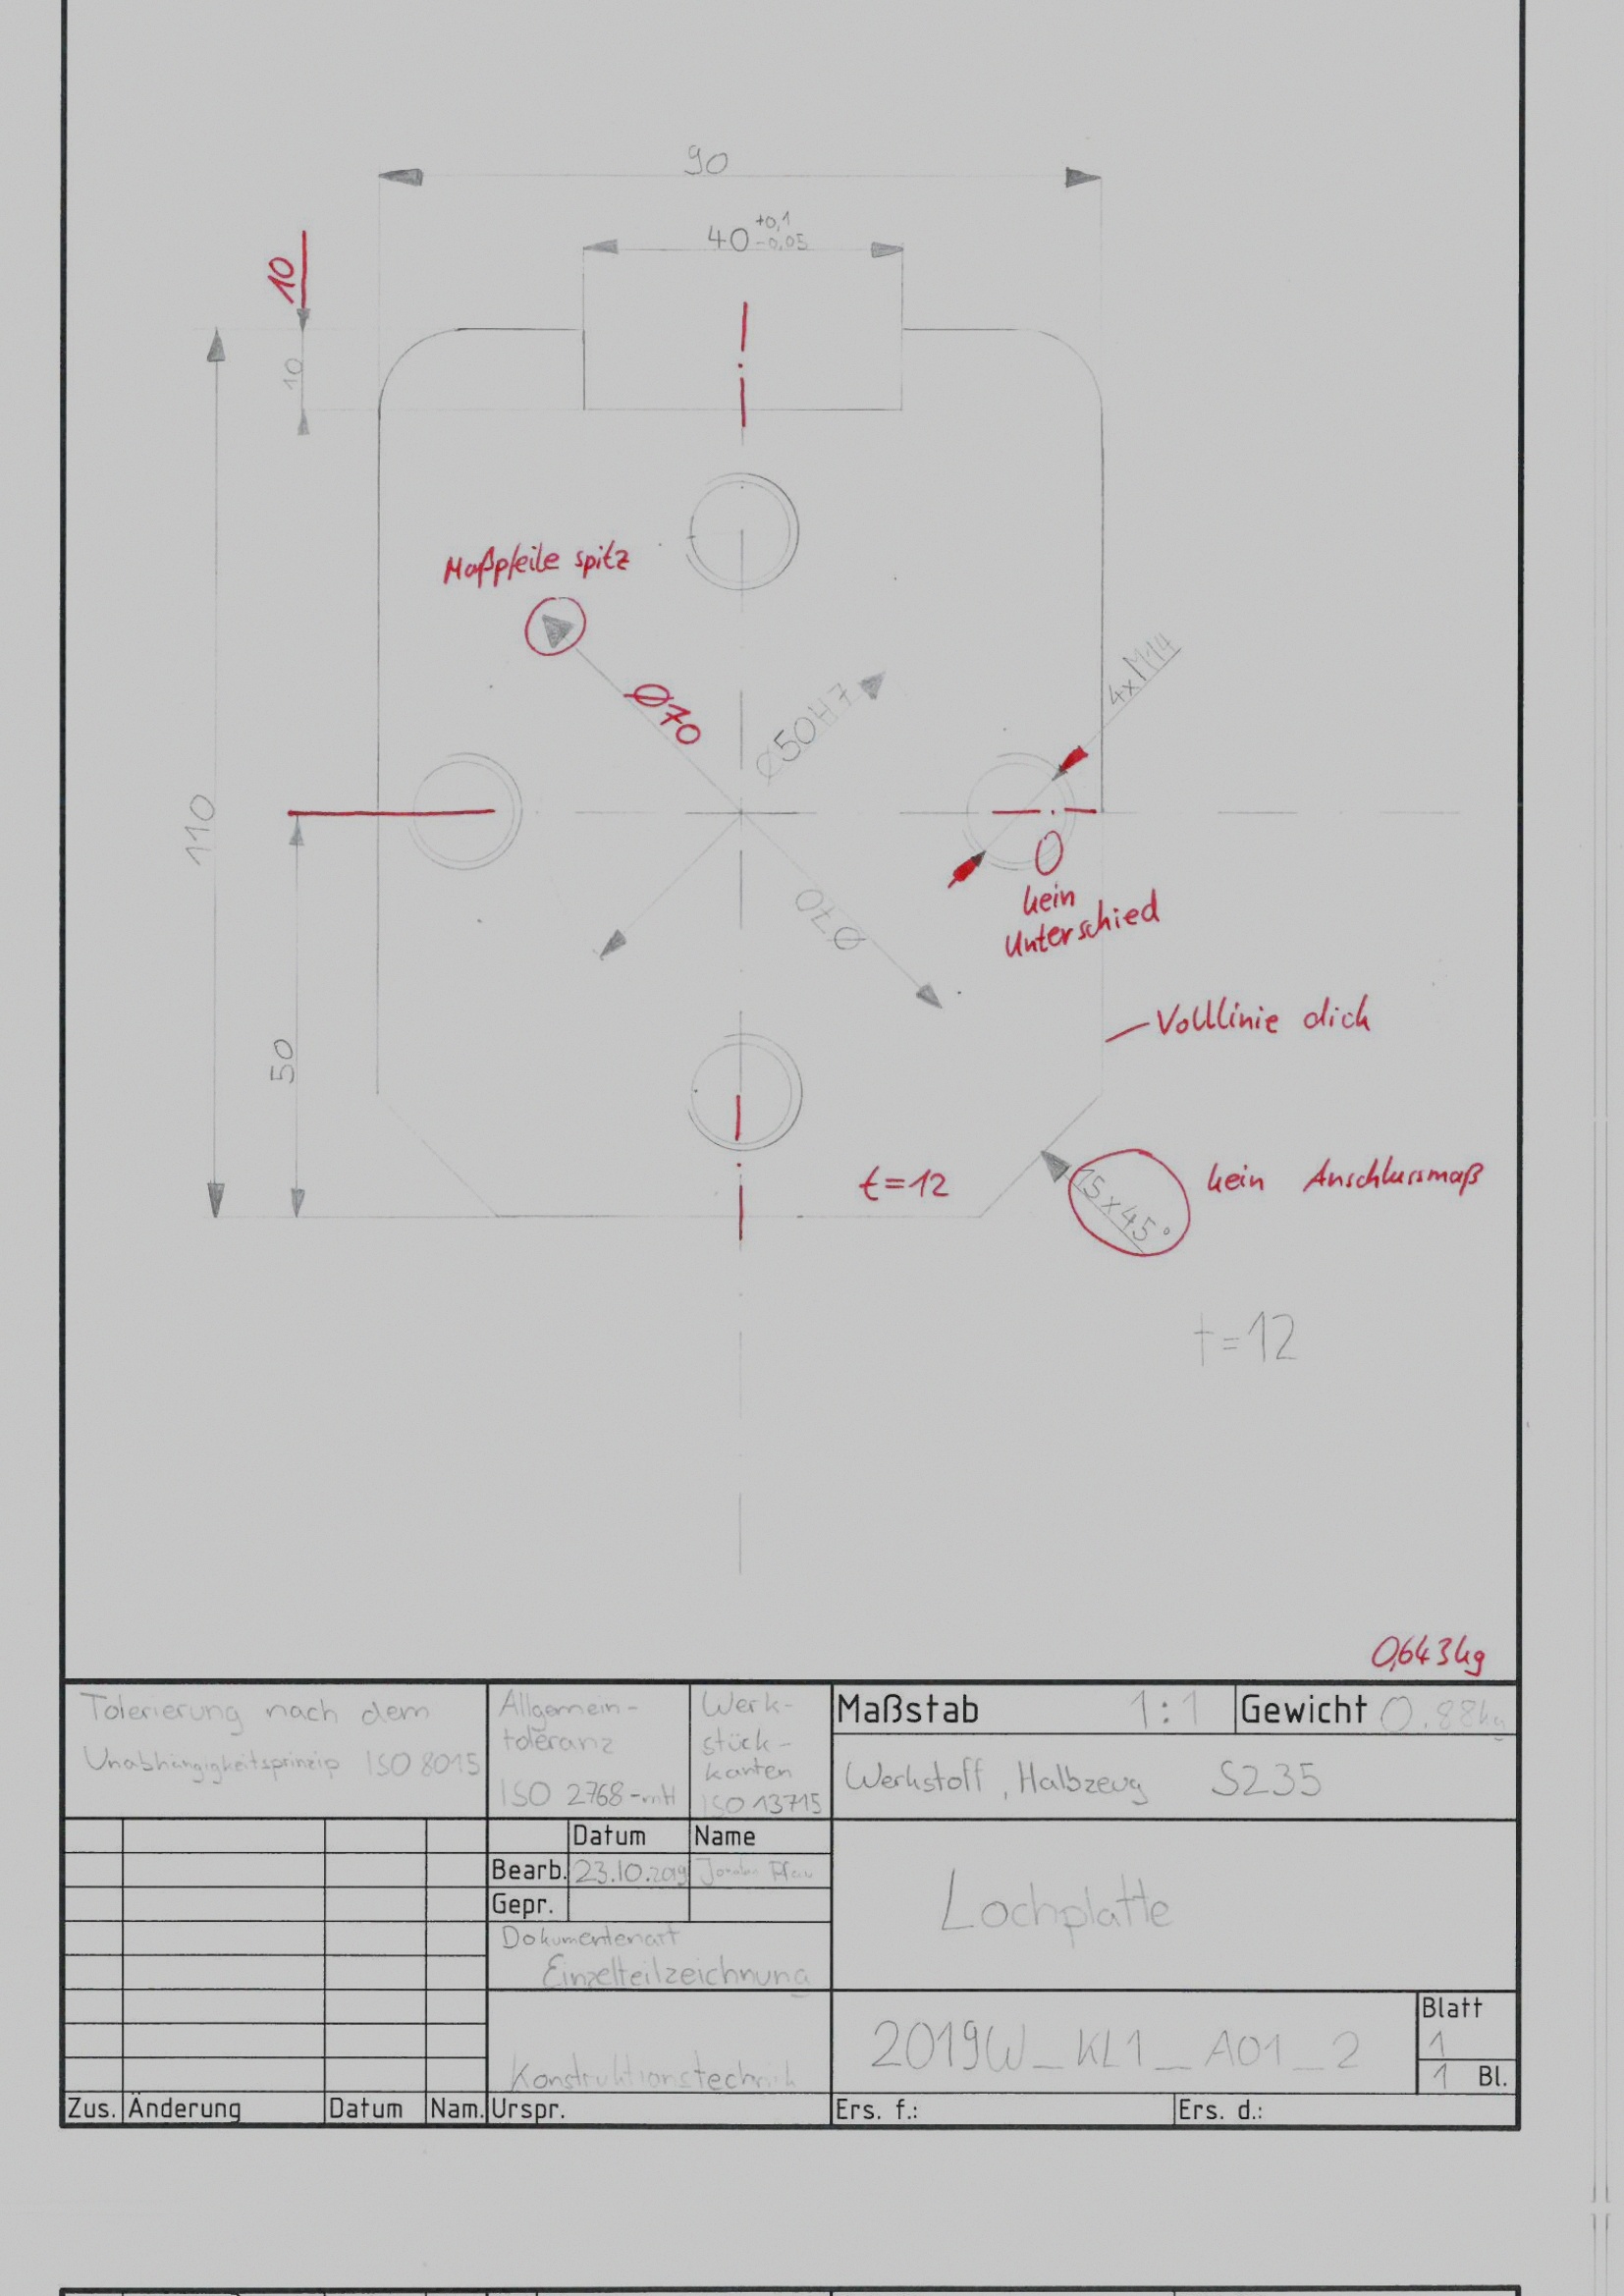 90
40 +0,1
-0,05
10
10
Maßpfeile spitz
4xM14
Ø70
Ø50H7
110
kein
Unterschied
Ø70
Vollinie dick
50
t=12
15x45°
kein Anschlussmaß
t=12
0,643kg
Tolerierung nach dem
Unabhängigkeitsprinzip ISO 8015
Allgemein-
toleranz
ISO 2768-mH
Werk-
stück-
kanten
ISO 13715
Maßstab 1:1
Gewicht 0.88kg
Werkstoff, Halbzeug S235
Datum Name
Bearb. 23.10.2019
Gepr.
Dokumentenart
Einzelteilzeichnung
Lochplatte
Konstruktionstechnik
2019W_KL1_A01_2
Blatt
1
1 Bl.
Zus. Änderung Datum Nam. Urspr. Ers. f.: Ers. d.: